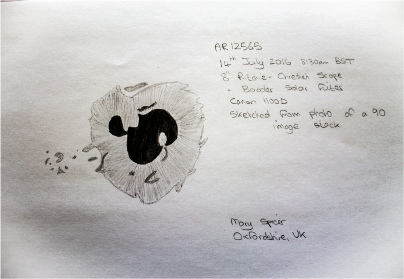 AR12565
14th July 2016 8:30am BST
8" Ritchie-Chretien Scope
+ Baader Solar Filter
Canon 1100D
Sketched from photo of a 90
image stack
Mary Spicer
Oxfordshire, UK